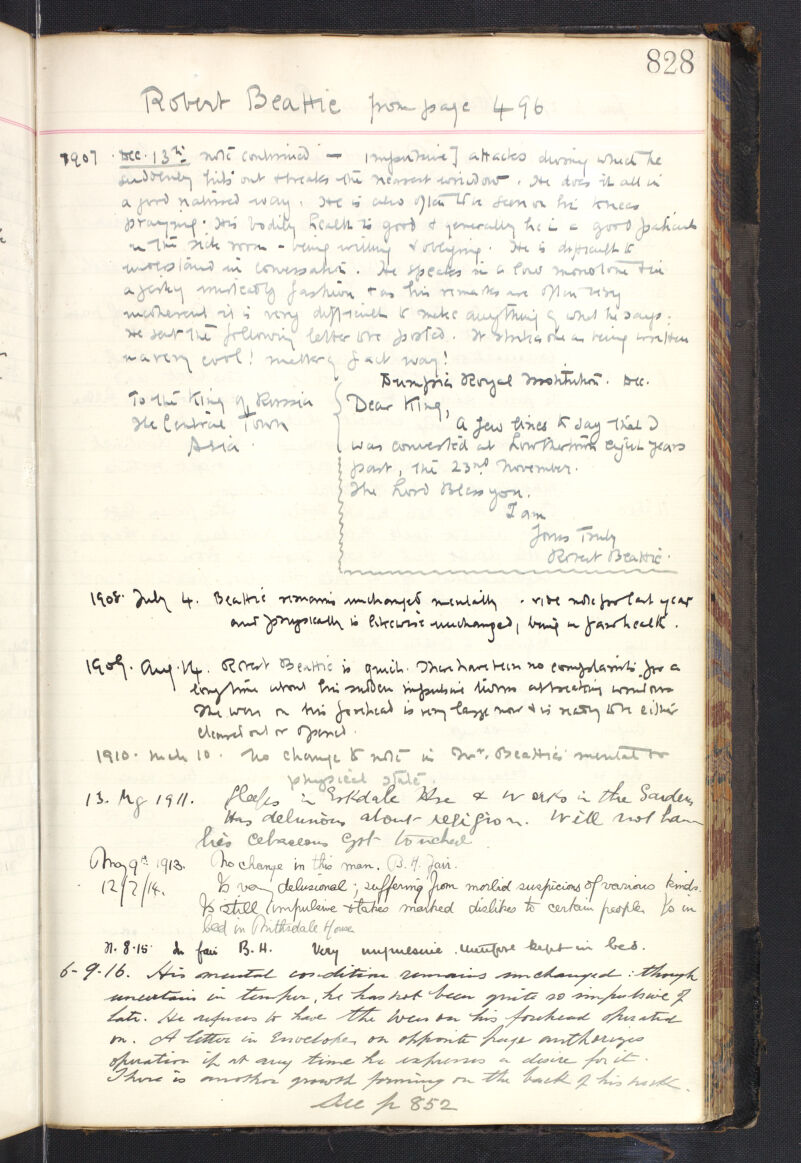 828
Robert Beattie from page 496
1907. Dec. 13th note continued — Impulsive] attacks during which he
suddenly hits out & breaks the nearest window. He does it all in
a good natured way. He is also often to be seen on his knees
praying. His bodily health is good & generally he is a good patient
in the sick room - being willing & obliging. He is difficult to
understand in conversation. He speaks in a low monotone & in
a jerky fashion & as his remarks are often very
incoherent it is very difficult to make anything of what he says.
He sent the following letter to be posted. It strikes one as being written
in a very cool! matter of fact way!
Dumfries Royal Institution. Dec.
To the King of Russia
The Central Town
Asia.
Dear King,
A few lines to say that I
was converted at eight years
past, the 23rd November.
The Lord Bless you.
I am
Yours Truly
Robert Beattie.
1908. July 4. Beattie remains unchanged mentally - vide note for last year
and physically is likewise unchanged, being in fair health.
1909. Aug. 14. Robert Beattie is quiet. There have been no complaints for a
long time about his sudden impulsive turns at breaking windows
The wen on his forehead is very large now & is ready to be either
cleaned out or opened.
1910. March 10. No change to note in Mr. Beattie's mental or
physical state.
13. Mg 1911. Sleeps in Eskdale Hse & works in the Garden,
Has delusions about religion. Will not have
his cebaceous cyst touched.
May 9th 1913. No change in this man. B.H. Fair.
12/2/14. Is very delusional; suffering from morbid suspicions of various kinds.
Is still impulsive & takes marked dislikes to certain people Is in
bed in Nithsdale House
11.8.15 In fair B.H. Very impulsive. therefore kept in bed.
6-9-16. His mental condition remains unchanged: though
uncertain in temper, he has not been quite so impulsive of
late. He refuses to have the wen on his forehead operated
on. A letter in Envelope on opposite page authorizes
operation if at any time he expresses a desire for it.
There is another growth forming on the back of his neck.
See p 852